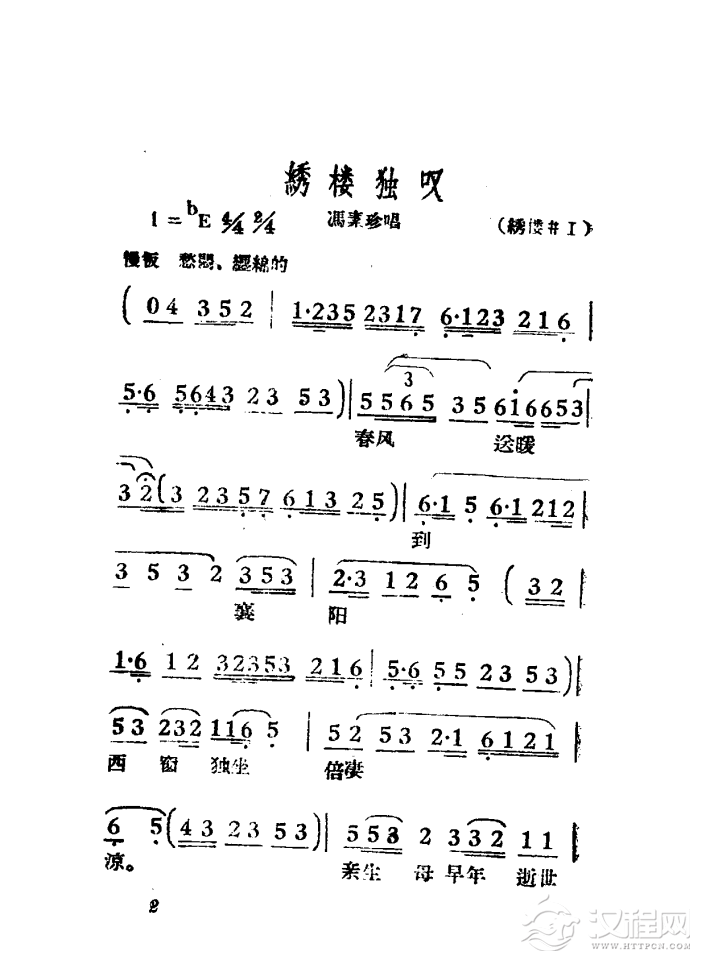 綉楼独叹
1=ᵇE 4/4 2/4 馮素珍唱 (綉楼#I)
慢板 愁悶、纒綿的
(04 352 | 1·235 2317 6·123 216 |
5·6 5643 23 53)| 5565 35 616653 |
3
春风 送暖
32(3 2357 613 25)| 6·1 5 6·1 212 |
到
3 5 3 2 353 | 2·3 12 6 5 (32 |
襄 阳
1·6 12 32353 216 | 5·6 55 23 53)|
53 232 116 5 | 52 53 2·1 6121 |
西 窗 独坐 倍凄
6 5(43 23 53)| 553 2 332 11 |
凉。 亲生 母 早年 逝世
2
汉程网
WWW.HTTPCN.COM